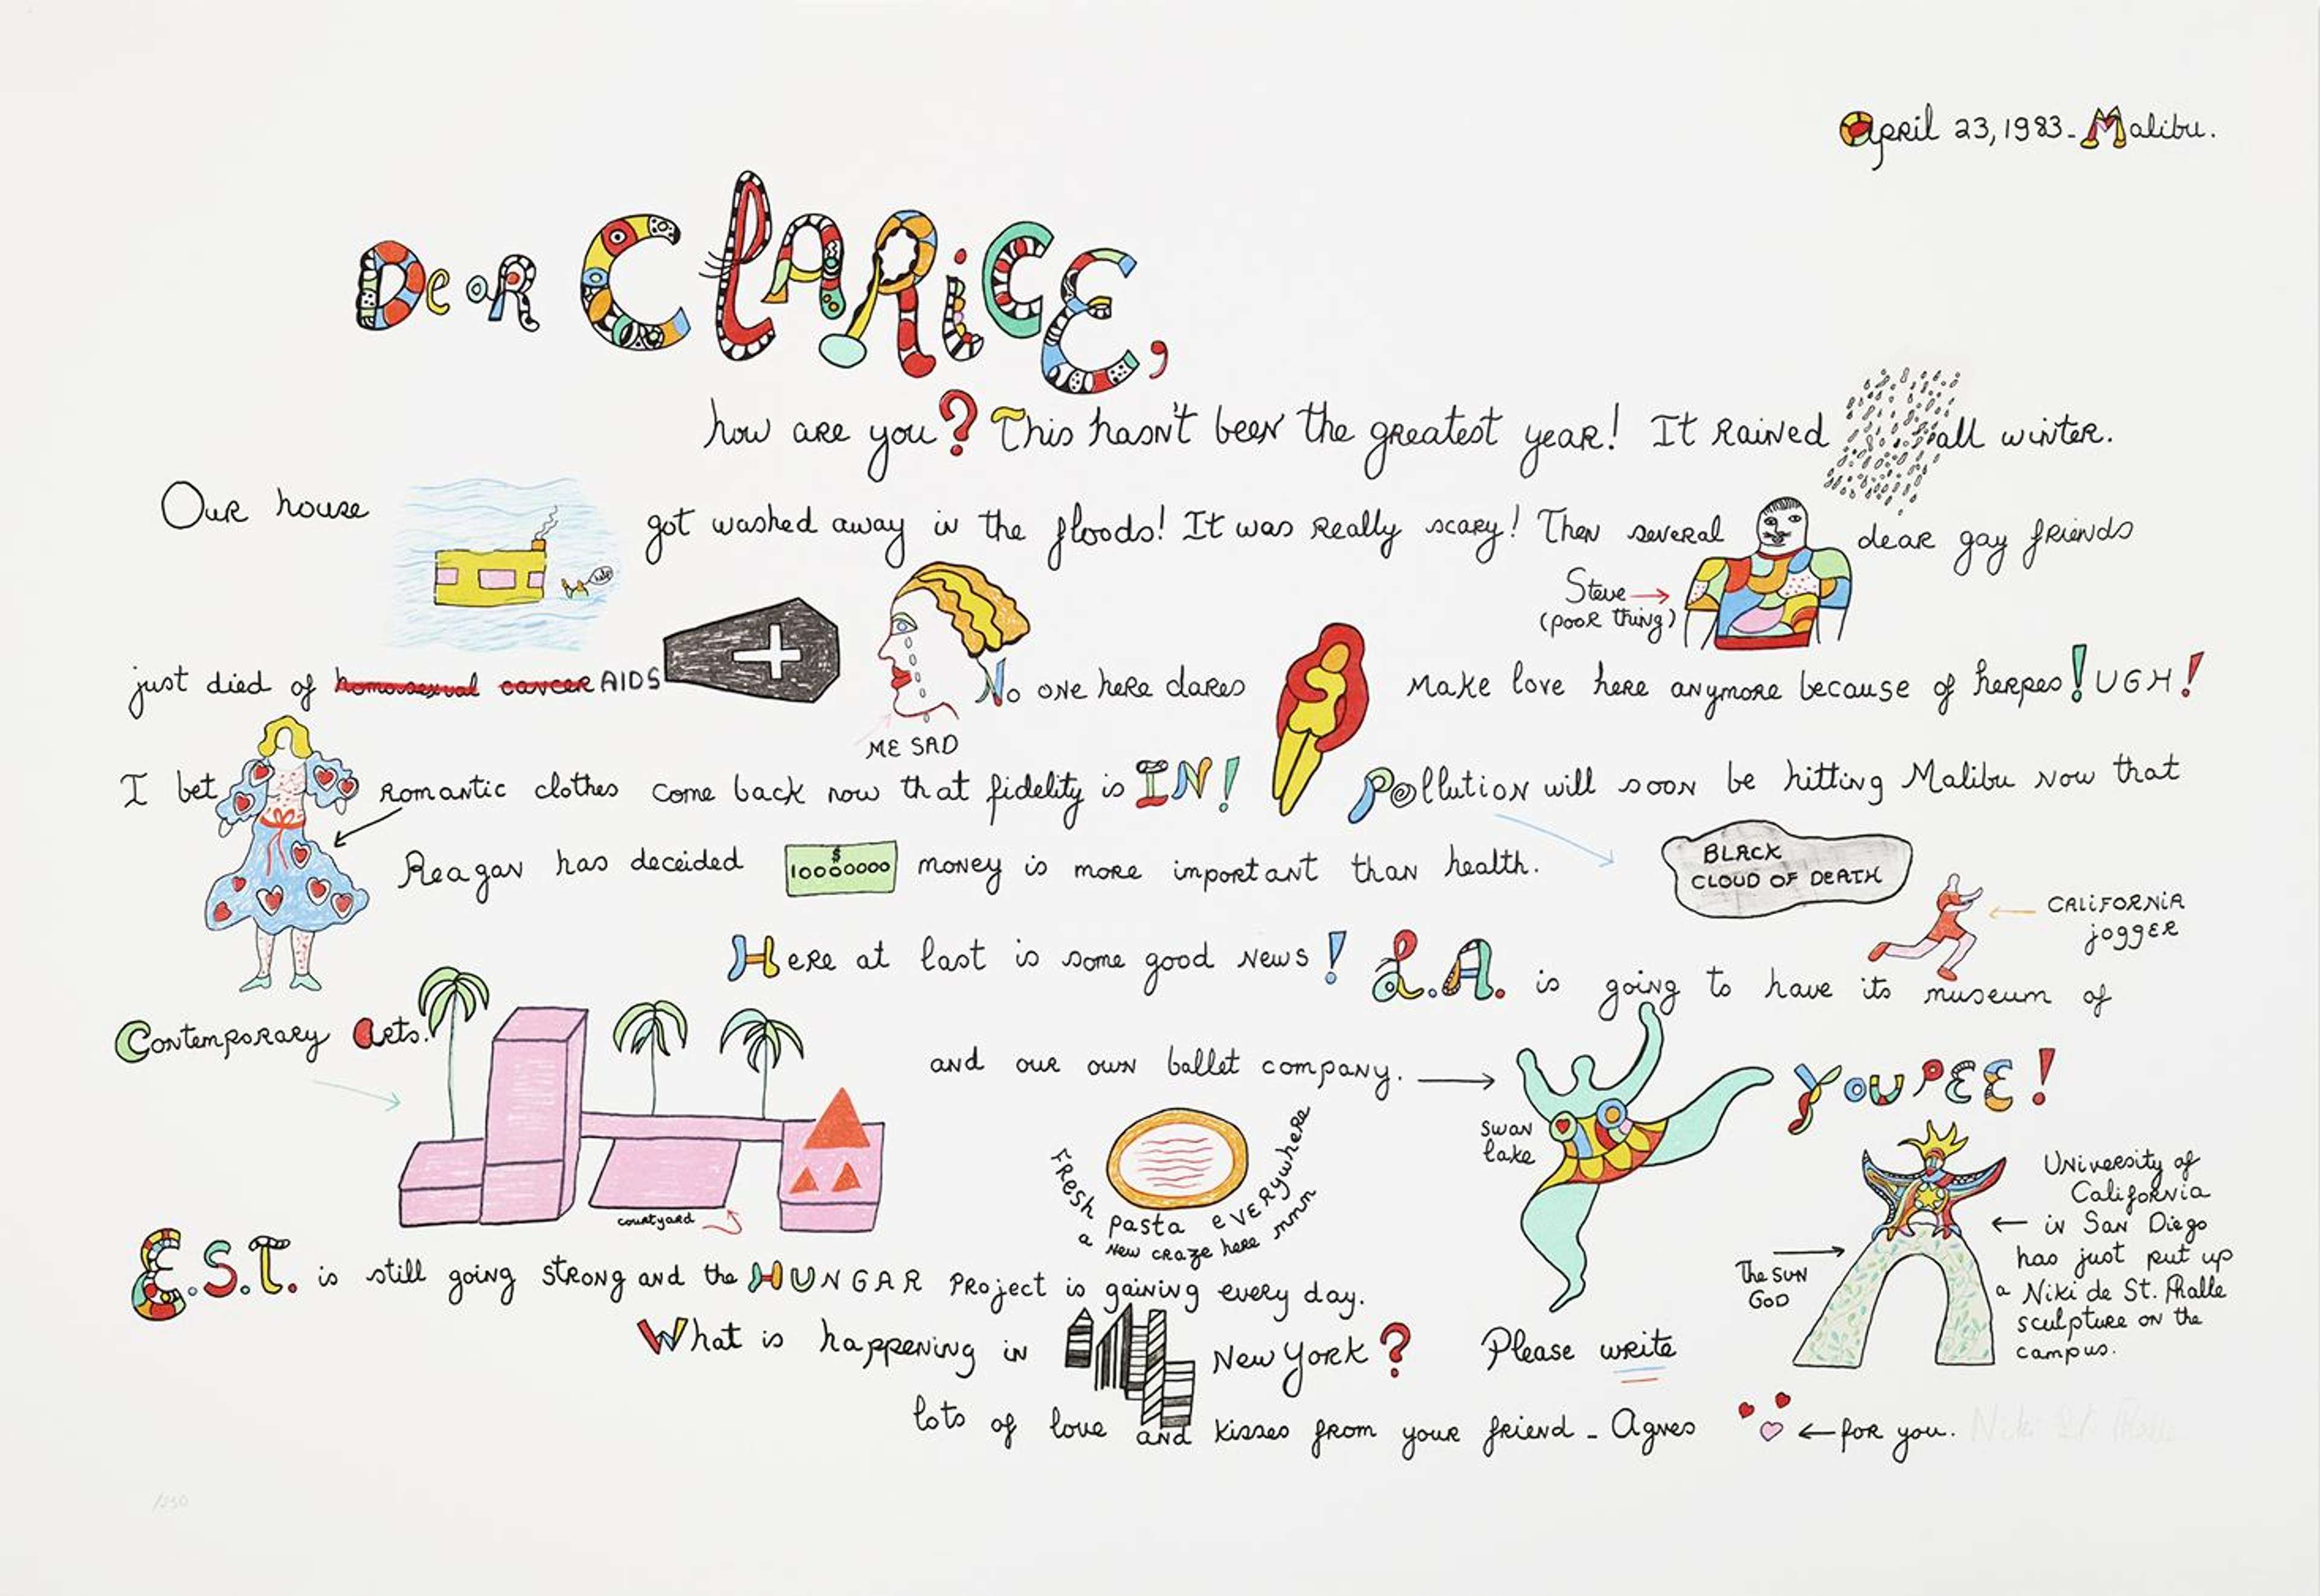 April 23, 1983 - Malibu.
Dear Clarice,
how are you? This hasn't been the greatest year! It rained all winter.
Our house
help
got washed away in the floods! It was really scary! Then several dear gay friends
Steve
(poor thing)
just died of homosexual cancer AIDS
ME SAD
No one here dares make love here anymore because of herpes! UGH!
I bet romantic clothes come back now that fidelity is IN! Pollution will soon be hitting Malibu now that
Reagan has deceided
$
10000000
money is more important than health.
BLACK
CLOUD OF DEATH
CALiFORNiA
jogger
Here at last is some good news! L.A. is going to have its museum of
Contemporary Arts.
courtyard
and our own ballet company.
swan
lake
YOUPEE!
Fresh pasta everywhere
a new craze here mmm
The SUN
GOD
University of
California
in San Diego
has just put up
a Niki de St. Phalle
sculpture on the
campus.
E.S.T. is still going strong and the HUNGAR Project is gaining every day.
What is happening in New York? Please write
lots of love and kisses from your friend - Agnes
for you.
Niki St. Phalle
/250